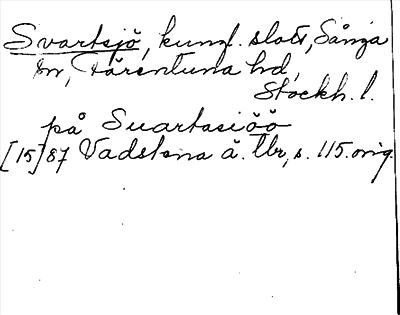 Svartsjö, kungl. slott, Sånga
sn, Färentuna hd,
Stockh. l.
på Suartasiöö
[15]87 Vadstena ä. tbr, s. 115. orig.